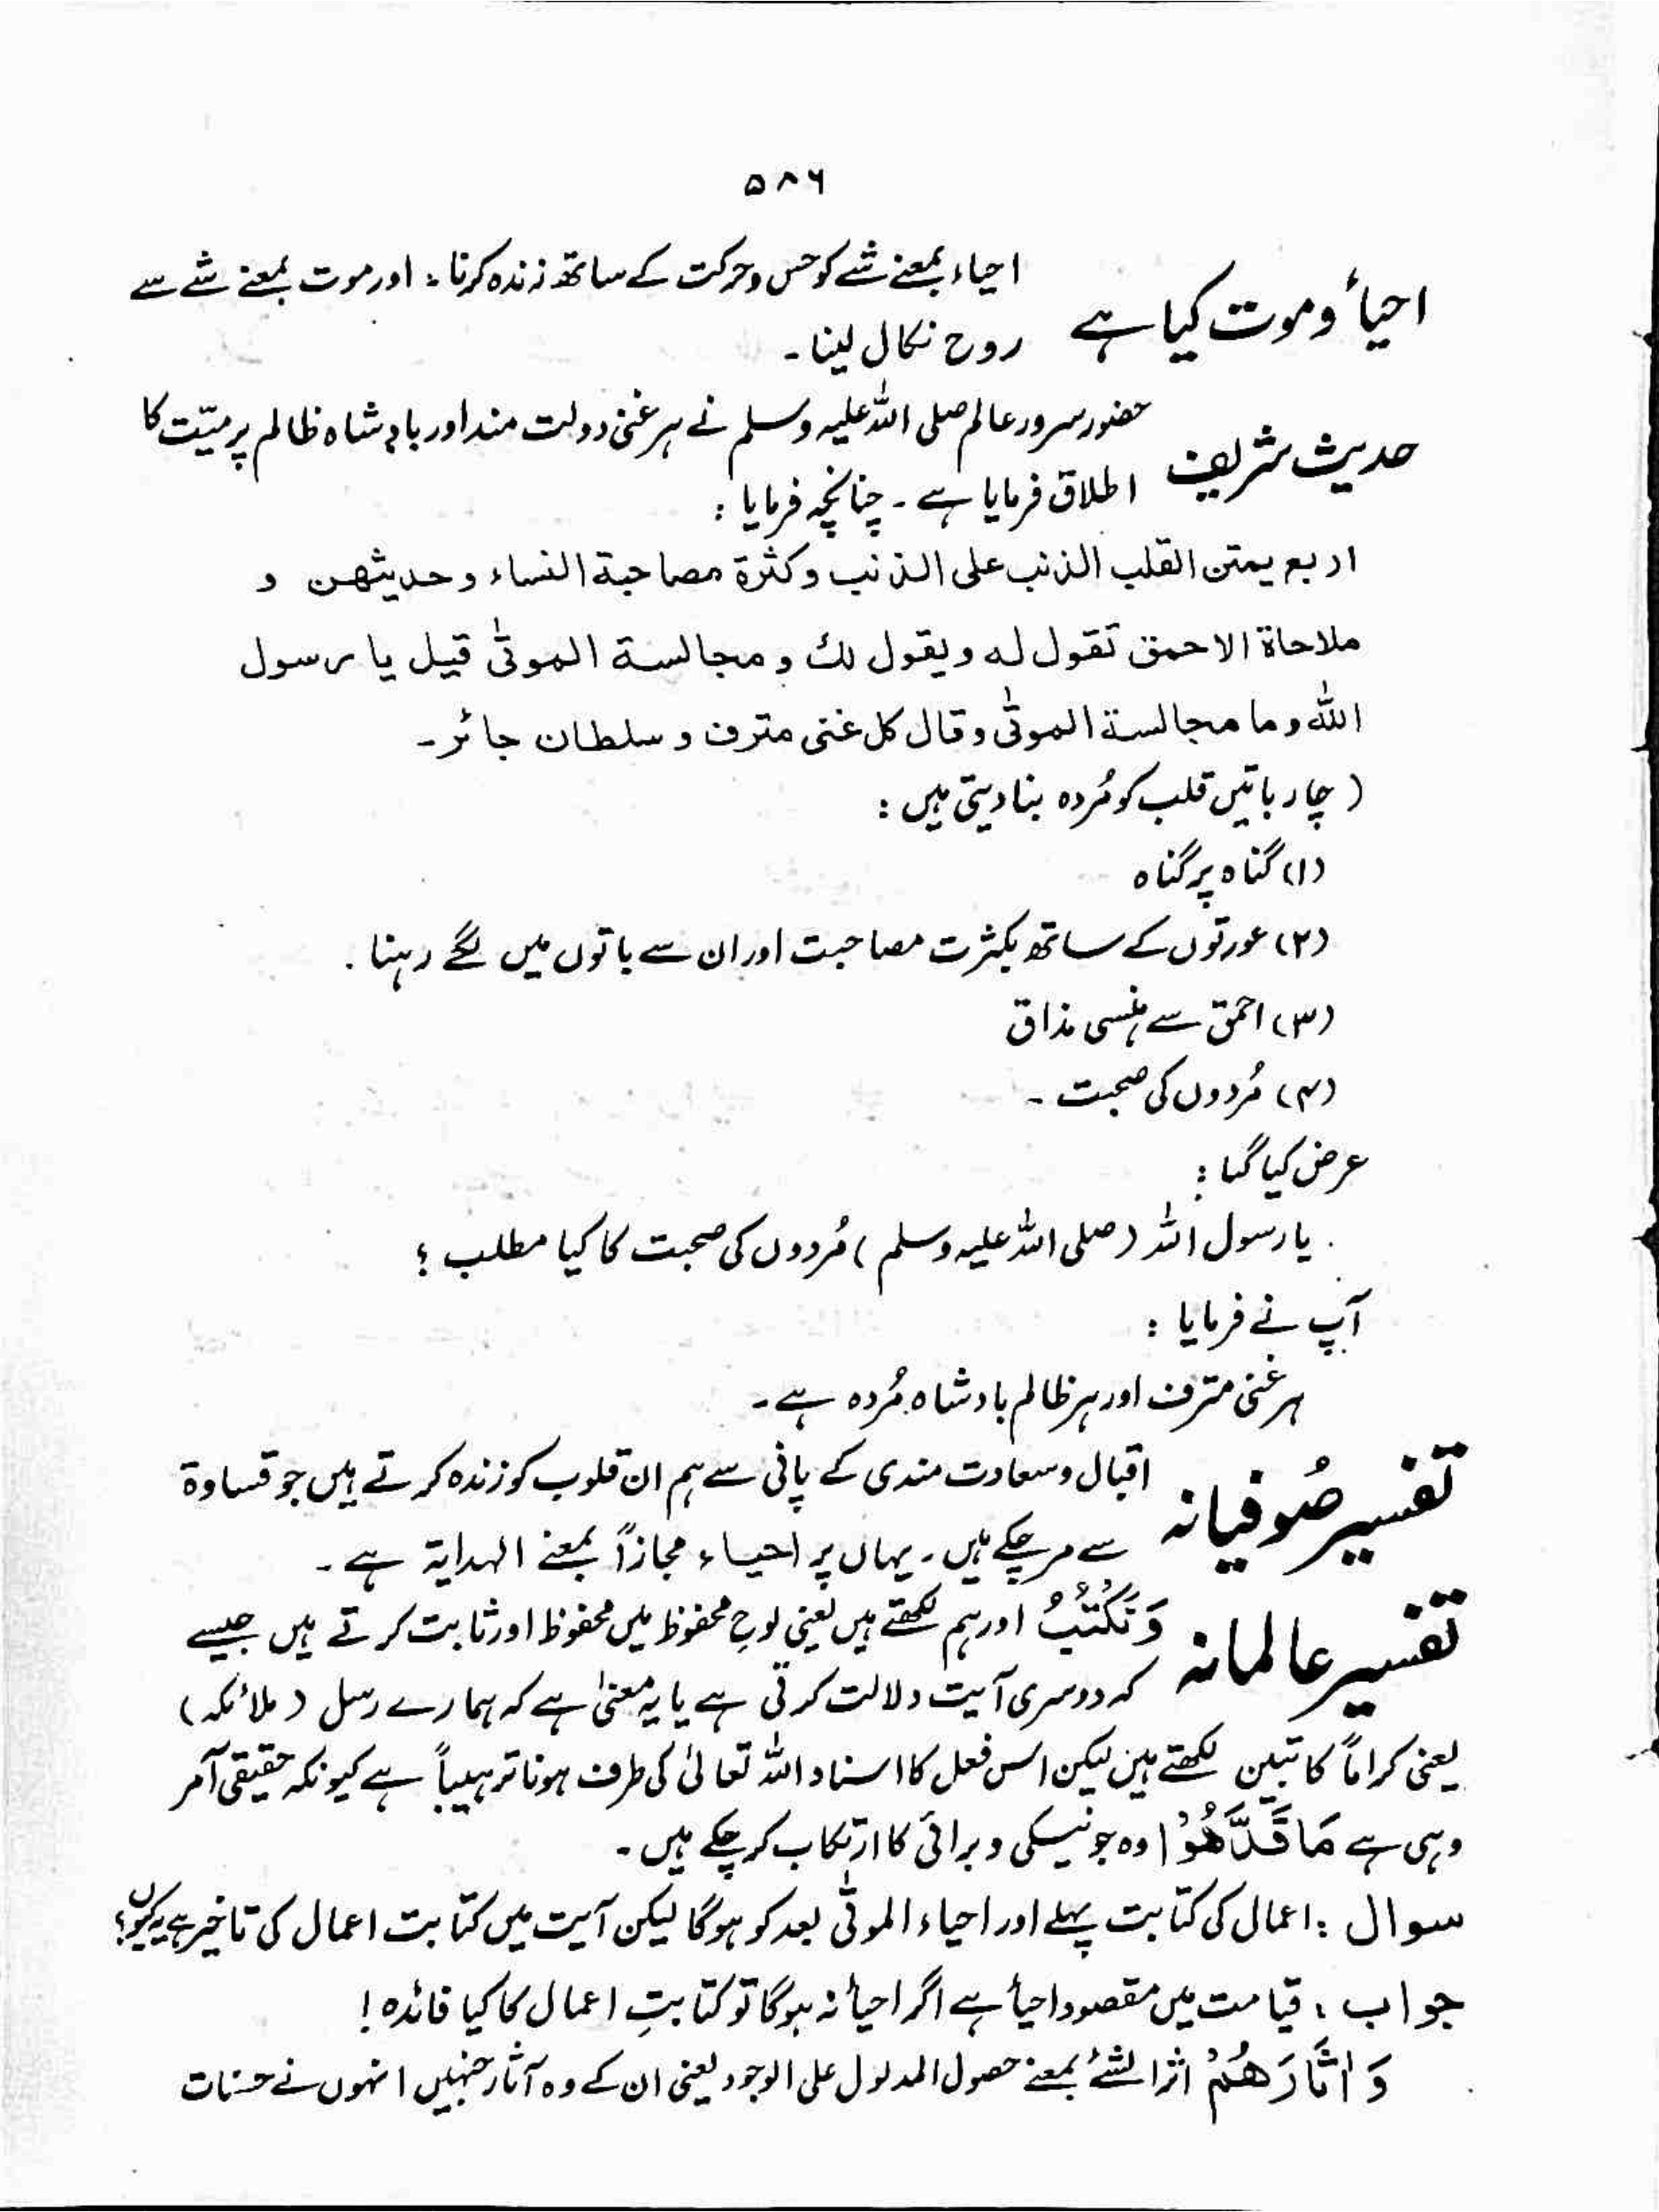 ۵۸۶
احیأ و موت کیا ہے احیاء بمعنے شے کو حس و حرکت کے ساتھ زندہ کرنا ؛ اور موت بمعنے شے سے
روح نکال لینا ۔
حدیث شریف حضور سرور عالم صلی اللہ علیہ وسلم نے ہر غنی دولت مند اور بادشاہ ظالم پر میّت کا
اطلاق فرمایا ہے ۔ چنانچہ فرمایا :
اربع یمتن القلب الذنب علی الذنب و کثرۃ مصاحبۃ النساء و حدیثھن و
ملاحاۃ الاحمق تقول لہ و یقول لك و مجالسۃ الموتٰی قیل یا رسول
اللّٰہ و ما مجالسۃ الموتٰی و قال کل غنی مترف و سلطان جائر ۔
( چار باتیں قلب کو مُردہ بنا دیتی ہیں :
(۱) گناہ پر گناہ
(۲) عورتوں کے ساتھ بکثرت مصاحبت اور ان سے باتوں میں لگے رہنا .
(۳) احمق سے ہنسی مذاق
(۴) مُردوں کی صحبت ۔
عرض کیا گیا :
یا رسول اللہ (صلی اللہ علیہ وسلم) مُردوں کی صحبت کا کیا مطلب ؟
آپ نے فرمایا :
ہر غنی مترف اور ہر ظالم بادشاہ مُردہ ہے ۔
تفسیر صُوفیانہ اقبال و سعادت مندی کے پانی سے ہم ان قلوب کو زندہ کرتے ہیں جو قساوۃ
سے مر چکے ہیں ۔ یہاں پر احیاء مجازاً بمعنے الہدایۃ ہے ۔
تفسیر عالمانہ وَنَكْتُبُ اور ہم لکھتے ہیں یعنی لوحِ محفوظ میں محفوظ اور ثابت کرتے ہیں جیسے
کہ دوسری آیت دلالت کرتی ہے یا یہ معنیٰ ہے کہ ہمارے رسل (ملائکہ)
یعنی کراماً کاتبین لکھتے ہیں لیکن اس فعل کا اسناد اللہ تعالیٰ کی طرف ہونا ترہیباً ہے کیونکہ حقیقی آمر
وہی ہے مَا قَدَّمُوْا وہ جو نیکی و برائی کا ارتکاب کر چکے ہیں ۔
سوال : اعمال کی کتابت پہلے اور احیاء الموتٰی بعد کو ہوگا لیکن آیت میں کتابت اعمال کی تاخیر ہے یہ کیوں؟
جواب : قیامت میں مقصود احیأ ہے اگر احیأ نہ ہوگا تو کتابتِ اعمال کا کیا فائدہ !
وَ اٰثَارَهُمْ اثر الشئ بمعنے حصول المدلول علی الوجود یعنی ان کے وہ آثار جنہیں انہوں نے حسنات